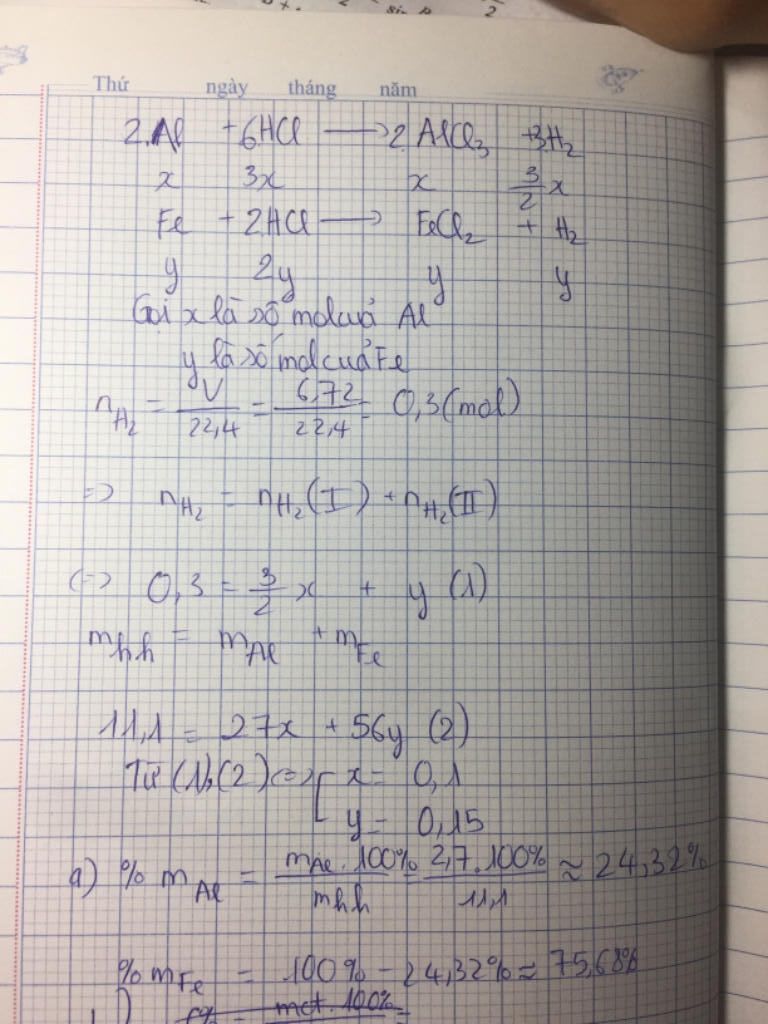 Thứ ngày tháng năm
2.Al + 6HCl → 2 AlCl₃ + 3H₂
x 3x x 3/2 x
Fe + 2HCl → FeCl₂ + H₂
y 2y y y
Gọi x là số mol cuả Al
y là số mol cuả Fe
n_H₂ = V/22,4 = 6,72/22,4 = 0,3 (mol)
=> n_H₂ = n_H₂(I) + n_H₂(II)
<=> 0,3 = 3/2 x + y (1)
m_hh = m_Al + m_Fe
11,1 = 27x + 56y (2)
Từ (1),(2) <=> [ x = 0,1
y = 0,15
a) % m_Al = m_Al . 100%/m_hh = 2,7 . 100%/11,1 ≈ 24,32%
% m_Fe = 100% - 24,32% ≈ 75,68%
C% = mct . 100% =